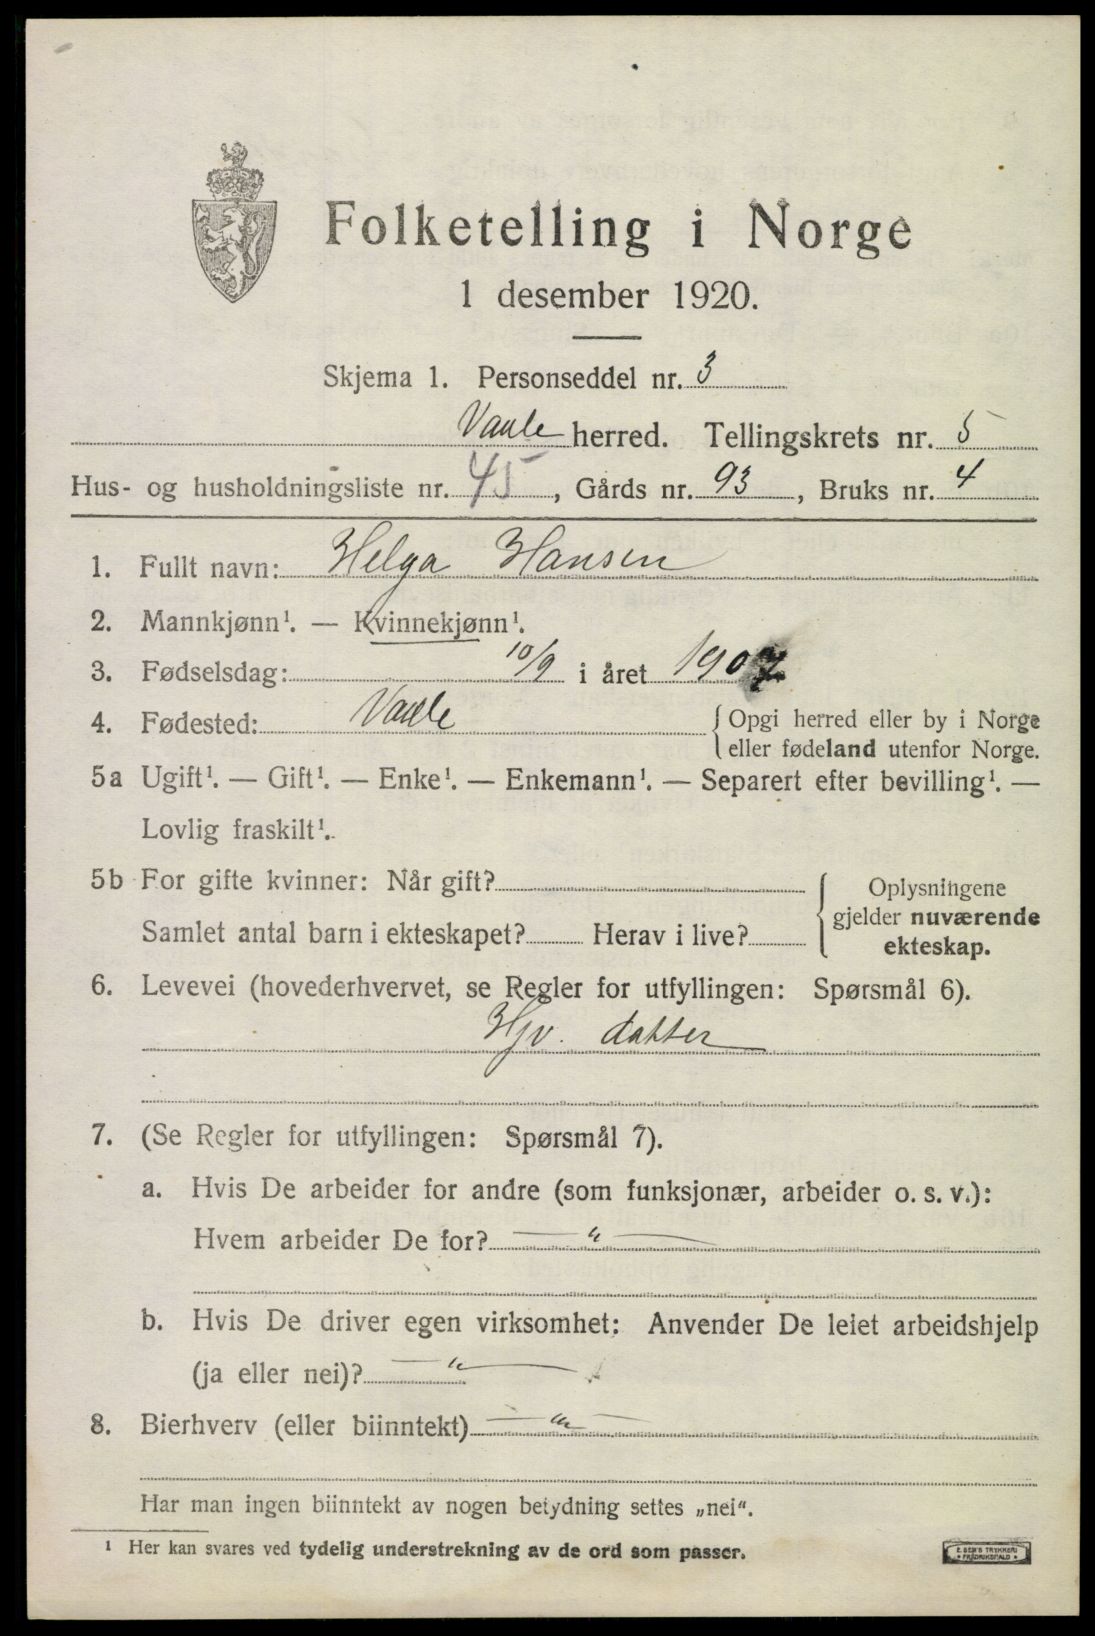 Folketelling i Norge
1 desember 1920.
Skjema 1. Personseddel nr. 3
Vaale herred. Tellingskrets nr. 5
Hus- og husholdningsliste nr. 45, Gårds nr. 93, Bruks nr. 4
1. Fullt navn: Helga Hansen
2. Mannkjønn¹. — Kvinnekjønn¹.
3. Fødselsdag: 10/9 i året 1907
4. Fødested: Vaale {Opgi herred eller by i Norge
eller fødeland utenfor Norge.
5a Ugift¹. — Gift¹. — Enke¹. — Enkemann¹. — Separert efter bevilling¹. —
Lovlig fraskilt¹.
5b For gifte kvinner: Når gift?
Samlet antal barn i ekteskapet? Herav i live?
{Oplysningene
gjelder nuværende
ekteskap.
6. Levevei (hovederhvervet, se Regler for utfyllingen: Spørsmål 6).
Hjv. datter
7. (Se Regler for utfyllingen: Spørsmål 7).
a. Hvis De arbeider for andre (som funksjonær, arbeider o. s. v.):
Hvem arbeider De for? — " —
b. Hvis De driver egen virksomhet: Anvender De leiet arbeidshjelp
(ja eller nei)? — " —
8. Bierhverv (eller biinntekt) — " —
Har man ingen biinntekt av nogen betydning settes „nei“.
¹ Her kan svares ved tydelig understrekning av de ord som passer.